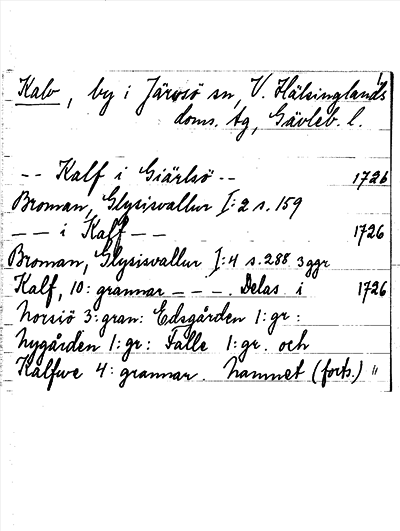 1
Kalv, by i Järvsö sn, V. Hälsinglands
doms. tg, Gävleb. l.
-- Kalf i Giärlsö -- 1726
Broman, Glysisvallur I:2 s. 159
-- -- i Kalf -- -- 1726
Broman, Glysisvallur I:4 s. 288 3 ggr
Kalf, 10: grannar -- -- --. Delas i 1726
Norsiö 3: gran: Edsgården 1: gr:
Nygården 1: gr: Falle 1: gr. och
Kalfwe 4: grannar. Namnet (forts.) "